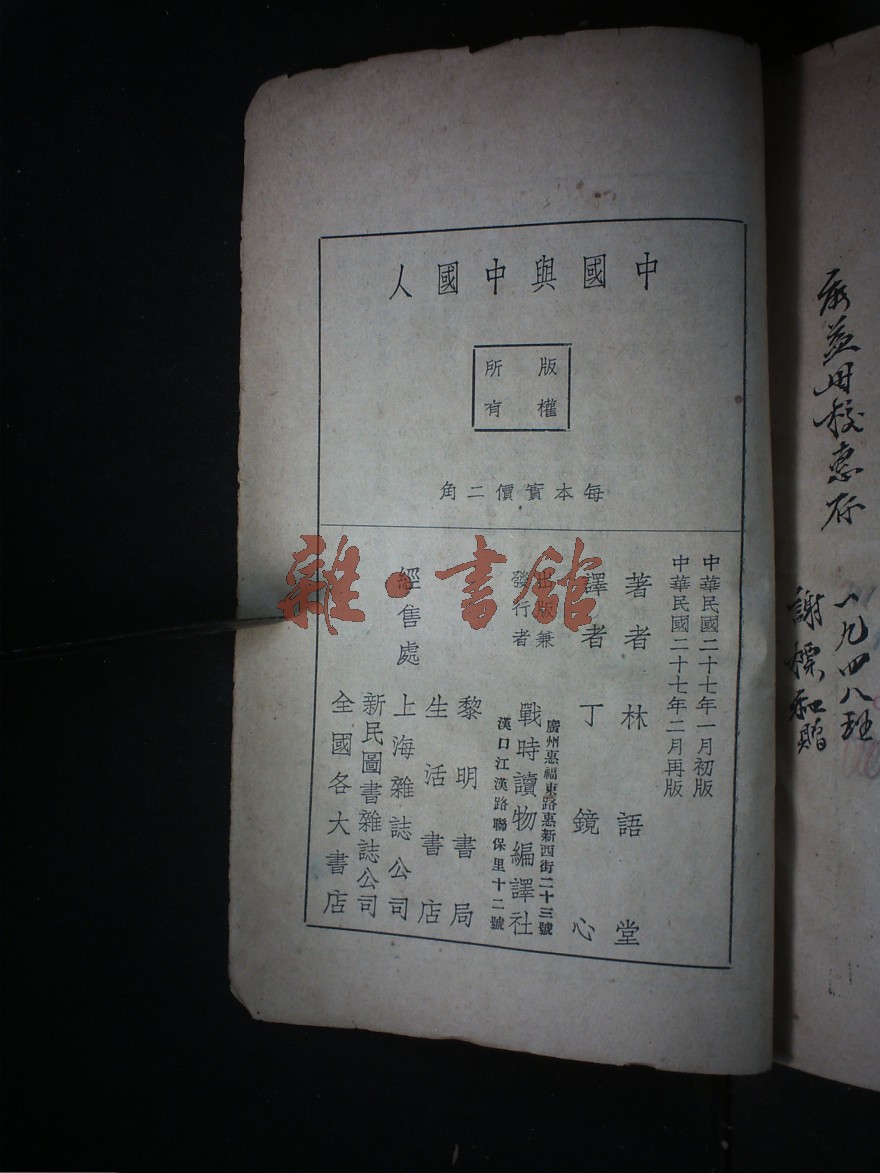 中國與中國人
版權
所有
每本實價二角
中華民國二十七年一月初版
中華民國二十七年二月再版
著者 林語堂
譯者 丁鏡心
出版兼
發行者
廣州惠福東路惠新西街二十三號
戰時讀物編譯社
漢口江漢路聯保里十二號
經售處
黎明書局
生活書店
上海雜誌公司
新民圖書雜誌公司
全國各大書店
雜·書館
母校惠存
一九四八班
謝標和贈